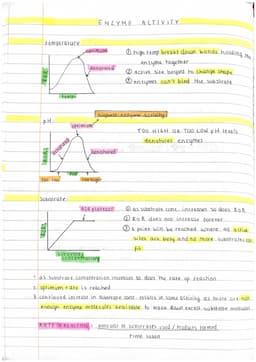 ENZYME ACTIVITY
temperature
optimum
denatured
RATE
temp
① high temp break down bonds holding the
enzyme together
② active site begins to change shape
③ enzymes can't bind the substrate
highest enzyme activity
pH
optimum
denatured
denatured
RATE
too low
too high
TOO HIGH OR TOO LOW pH levels
denatures enzymes
substrate
ROR plateaus
RATE
substrate
concentration
① as substrate conc. increases so does R.O.R
② R.O.R does not increase forever
③ a point will be reached where all active
sites are busy and no more substrates can
fit
1. as substrate concentration increases so does the rate of reaction
2. optimum rate is reached
3. continued increase in substrate conc. results in same
not
enough enzyme molecules available to break down excess substrate molecules
RATE OF REACTION: amount of substrates used / products formed
time taken